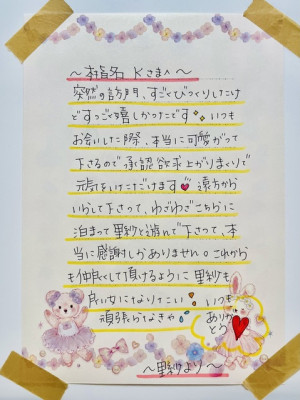 〜本指名 Kさまへ〜
突然の訪問、すごくびっくりしたけ
どすっごく嬉しかったです いつも
お会いした際、本当に可愛がって
下さるので承認欲求上がりまくりで
元気をいただけます 遠方から
いらして下さって、わざわざこちらに
泊まって里紗と遊んで下さって、本
当に感謝しかありません。これから
も仲良くして頂けるように里紗も
良い女になりたい いつも
頑張らなきゃ ありが
とう
〜里紗より〜